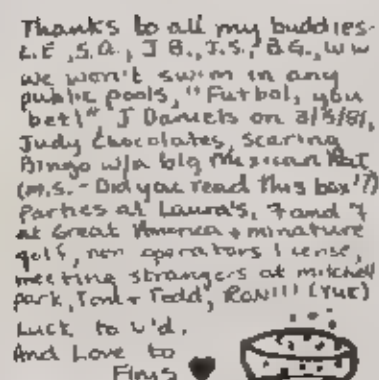 Thanks to all my buddies-
L.E, S.A., J B., J.S., B.G., WW
we won't swim in any
public pools, "Futbol, you
bet!" J Daniels on 3/5/81,
Judy Chocolates, scaring
Bingo w/a big Mexican Hat
(M.S. - Did you read this box??)
Parties at Laura's, 7 and 7
at Great America + minature
golf, non operators lisense,
meeting strangers at mitchell
park, Tom + Todd, Ran!!! (YUK)
Luck to u'd.
And Love to